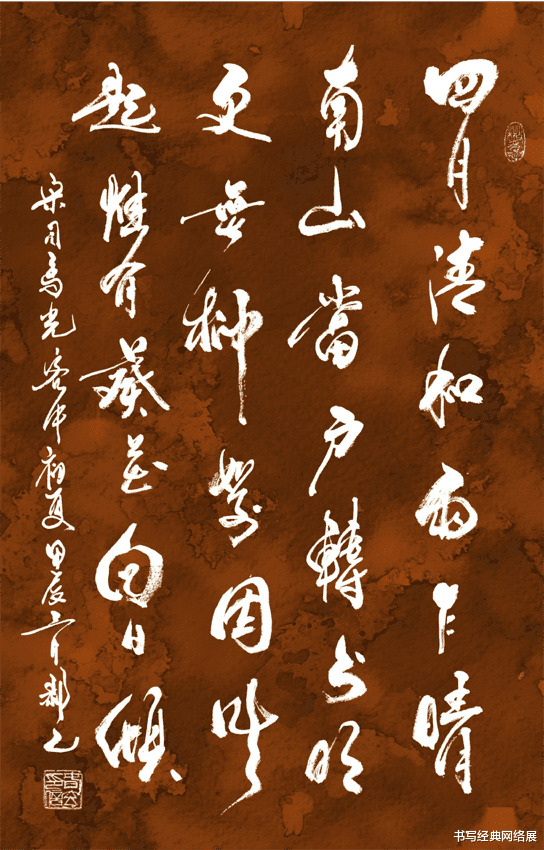 四月清和雨乍晴
南山當户轉分明
更無柳絮因風
起惟有葵花向日傾
宋司馬光客中初夏甲辰
书写经典网络展